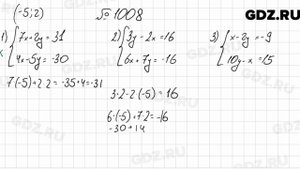 GDZ.RU
(-5; 2) № 1008
1) { 7x+2y = 31
4x-5y = -30
2) { 3y - 2x = 16
6x + 7y = -16
3) { x - 2y = -9
10y - x = 15
7·(-5)+2·2 = -35+4=-31
3·2-2·(-5) = 16
6·(-5)+7·2 = -16
-30+14
GDZ.RU